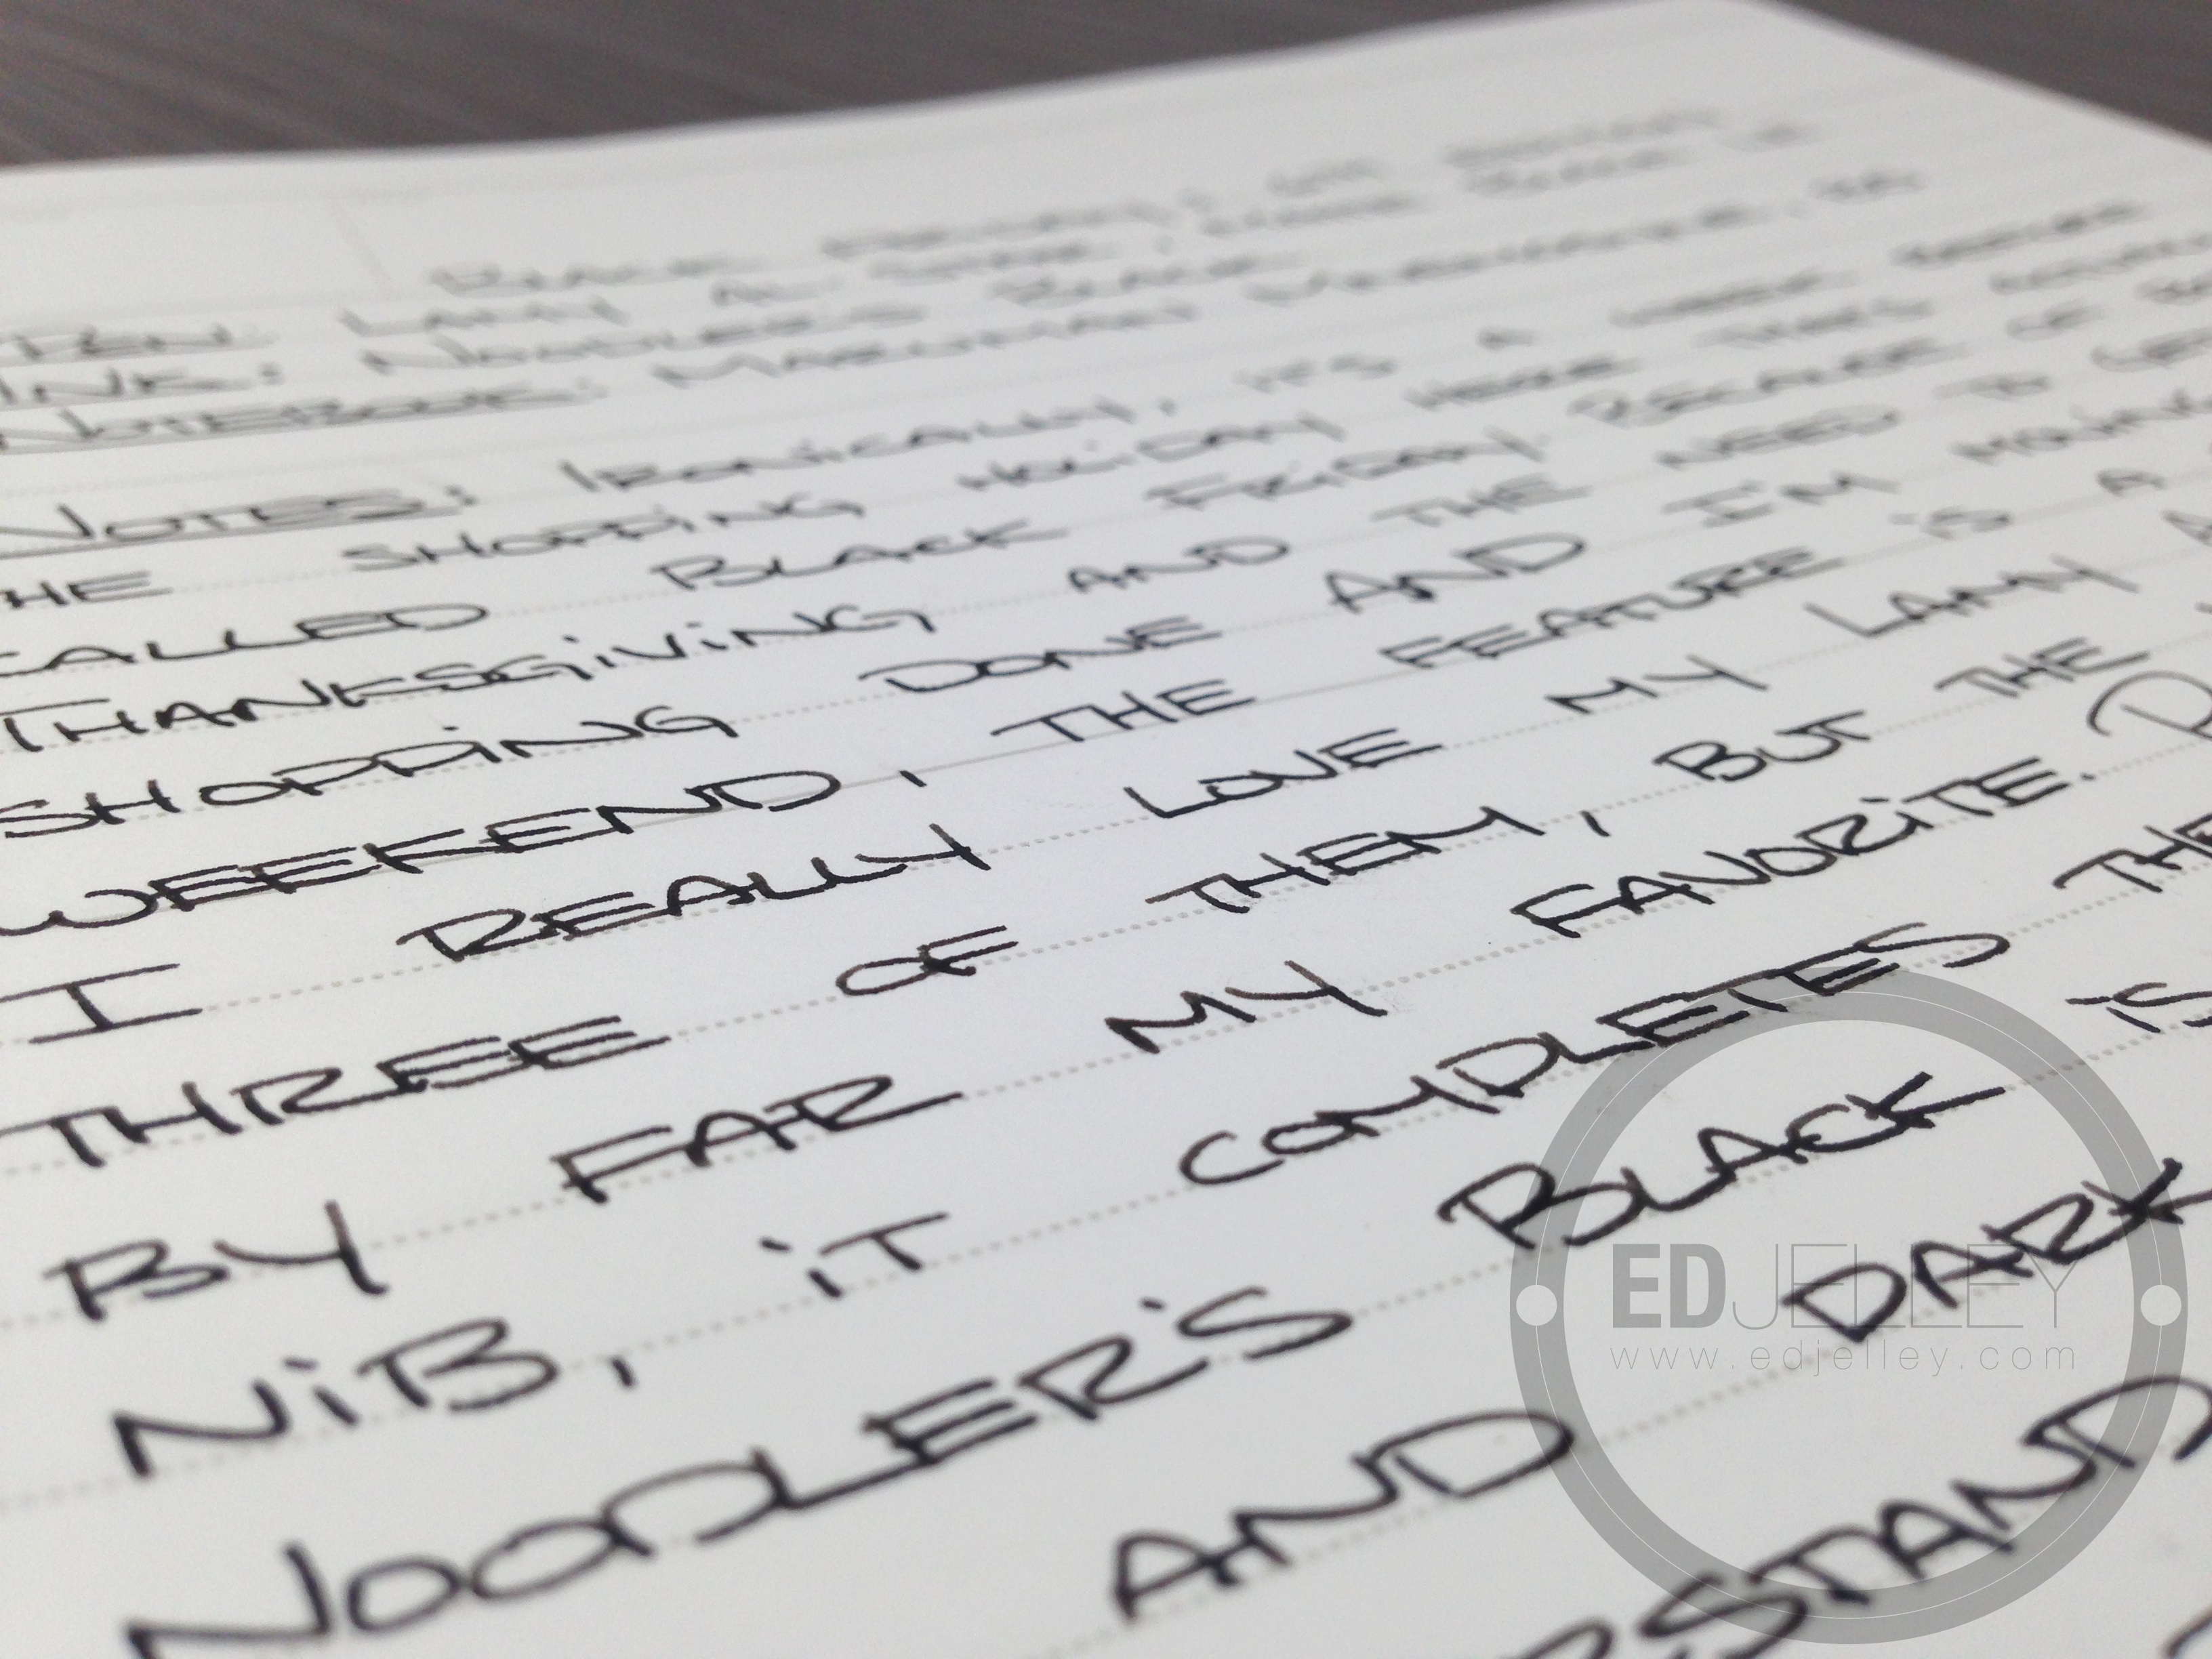 PEN: LAMY AL-STAR, 
INK: NOODLER'S BLACK
NOTEBOOK: MARUMAN MNEMOSYNE
NOTES: IRONICALLY, IT'S A
THE SHOPPING HOLIDAY HERE THAT'S
CALLED BLACK FRIDAY. BECAUSE OF
THANKSGIVING AND THE NEED TO GET
SHOPPING DONE AND I'M MOVING
WEEKEND, THE FEATURE IS A
I REALLY LOVE MY LAMY
THREE OF THEM, BUT THE
BY FAR MY FAVORITE.
NIB, IT COMPLETES THE
NOODLER'S BLACK IS
AND DARK
EDJELLEY
www.edjelley.com